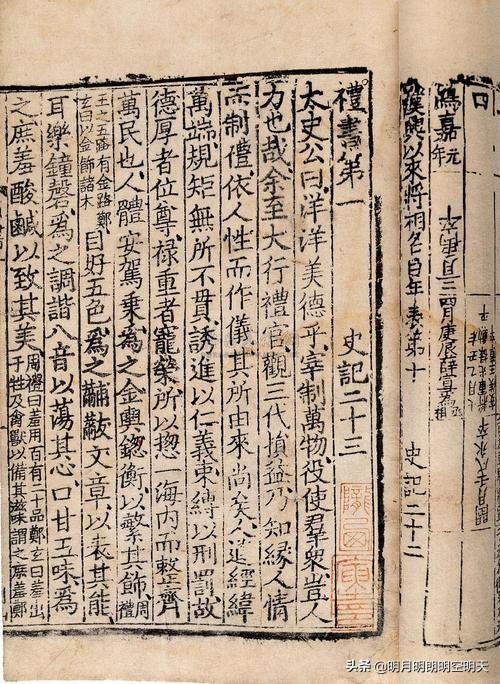 四
鴻嘉元年
漢興以來將相名臣年表第十 史記二十二
禮書第一 史記二十三
太史公曰洋洋美德乎宰制萬物役使羣衆豈人
力也哉余至大行禮官觀三代損益乃知緣人情
而制禮依人性而作儀其所由來尚矣人道經緯
萬端規矩無所不貫誘進以仁義束縛以刑罰故
德厚者位尊祿重者寵榮所以揔一海內而整齊
萬民也人體安駕乘爲之金輿鍯衡以繁其飾周禮
王之五路有金路鄭玄曰以金飾諸木目好五色爲之黼黻文章以表其能
耳樂鐘磬爲之調諧八音以蕩其心口甘五味爲
之庶羞酸鹹以致其美周禮曰羞用百有二十品鄭玄曰羞出于牲及禽獸以備其滋味謂之庶羞鄭
头条 @明月明朗明空明天